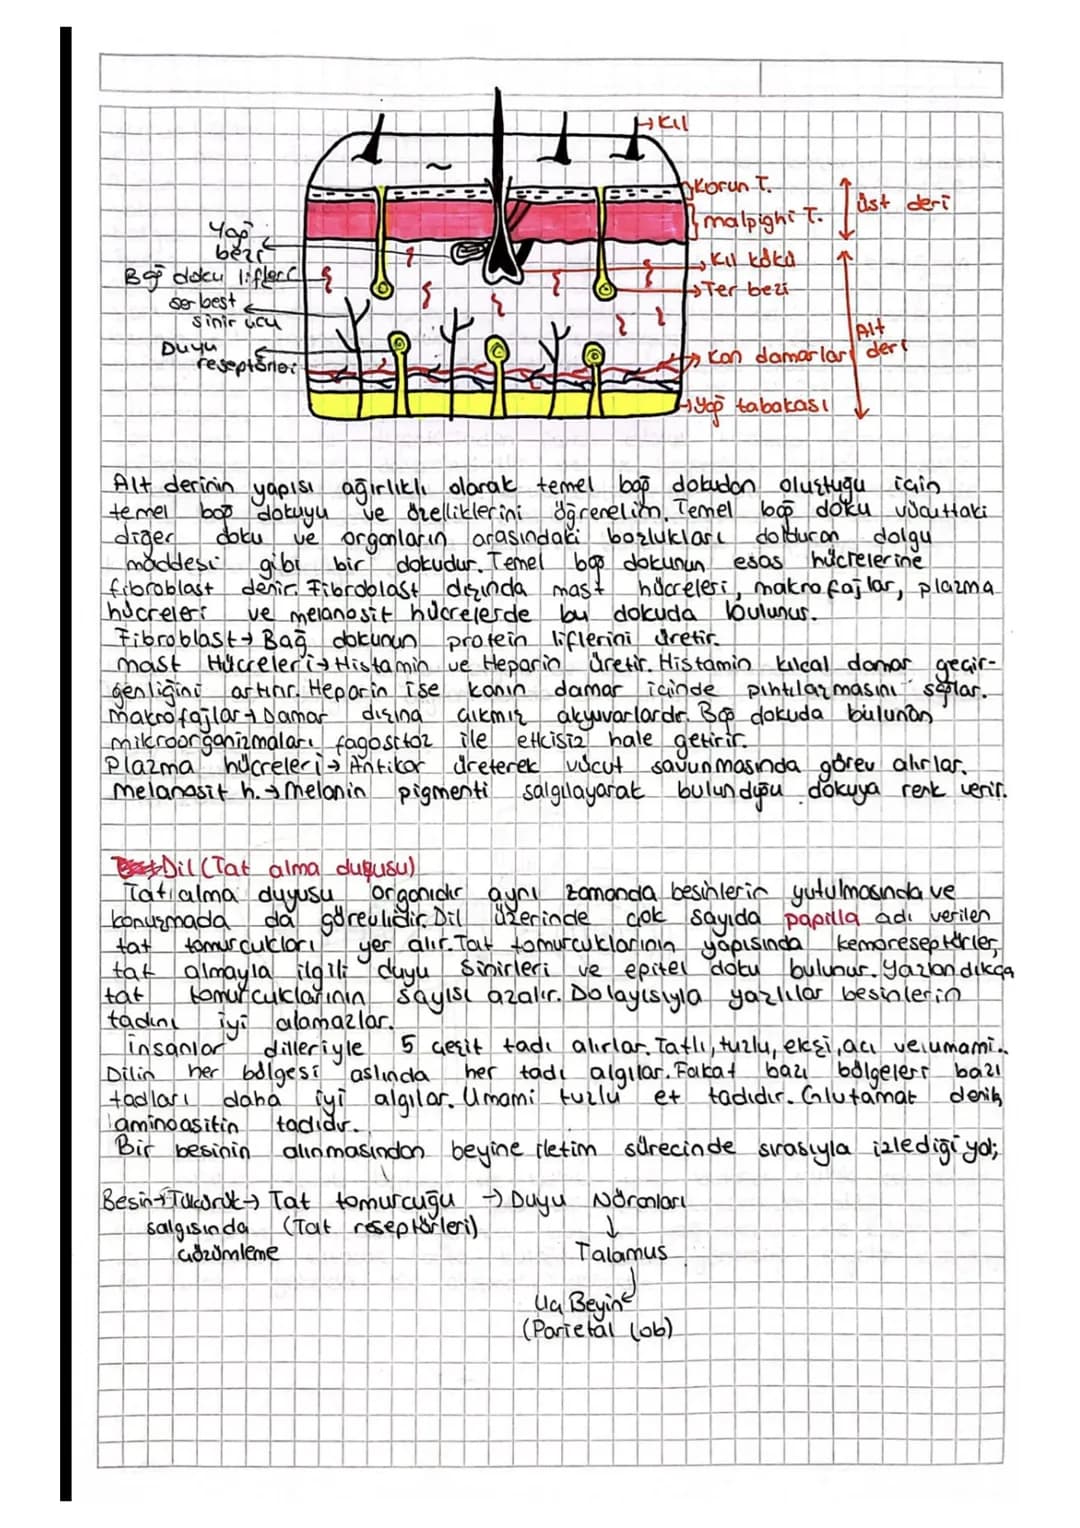 Kıl
Korun T.
malpighi T.
üst deri
Yağ
bezi
Kıl kökü
Bağ doku lifleri
Ter bezi
serbest
sinir ucu
Alt
deri
Duyu
reseptörleri
Kan damarları
Yağ tabakası
Alt derinin yapısı ağırlıklı olarak temel bağ dokudan oluştuğu için
temel bağ dokuyu ve özelliklerini öğrenelim. Temel bağ doku vücuttaki
diğer doku ve organların arasındaki boşlukları dolduran dolgu
maddesi gibi bir dokudur. Temel bağ dokunun esas hücrelerine
fibroblast denir. Fibroblast dışında mast hücreleri, makrofajlar, plazma
hücreleri ve melanosit hücrelerde bu dokuda bulunur.
Fibroblast→ Bağ dokunun protein liflerini üretir.
mast Hücreleri→ Histamin ve Heparin üretir. Histamin kılcal damar geçir-
genliğini artırır. Heparin ise kanın damar içinde pıhtılaşmasını sağlar.
makrofajlar→ Damar dışına çıkmış akyuvarlardır. Bağ dokuda bulunan
mikroorganizmaları fagositoz ile etkisiz hale getirir.
Plazma hücreleri→ Antikor üreterek vücut savunmasında görev alırlar.
melanosit h.→ melanin pigmenti salgılayarak bulunduğu dokuya renk verir.
Dil (Tat alma duyusu)
Tat alma duyusu organıdır aynı zamanda besinlerin yutulmasında ve
konuşmada da görevlidir. Dil üzerinde çok sayıda papilla adı verilen
tat tomurcukları yer alır. Tat tomurcuklarının yapısında kemoreseptörler,
tat almayla ilgili duyu sinirleri ve epitel doku bulunur. Yaşlandıkça
tat tomurcuklarının sayısı azalır. Dolayısıyla yaşlılar besinlerin
tadını iyi alamazlar.
insanlar dilleriyle 5 çeşit tadı alırlar. Tatlı, tuzlu, ekşi, acı ve umami..
Dilin her bölgesi aslında her tadı algılar. Fakat bazı bölgeleri bazı
tadları daha iyi algılar. Umami tuzlu et tadıdır. Glutamat denilen
aminoasitin tadıdır.
Bir besinin alınmasından beyine iletim sürecinde sırasıyla izlediği yol;
Besin→ Tükürük→ Tat tomurcuğu → Duyu Nöronları
salgısında (Tat reseptörleri)
çözümleme
Talamus
Uç Beyin
(Parietal lob)